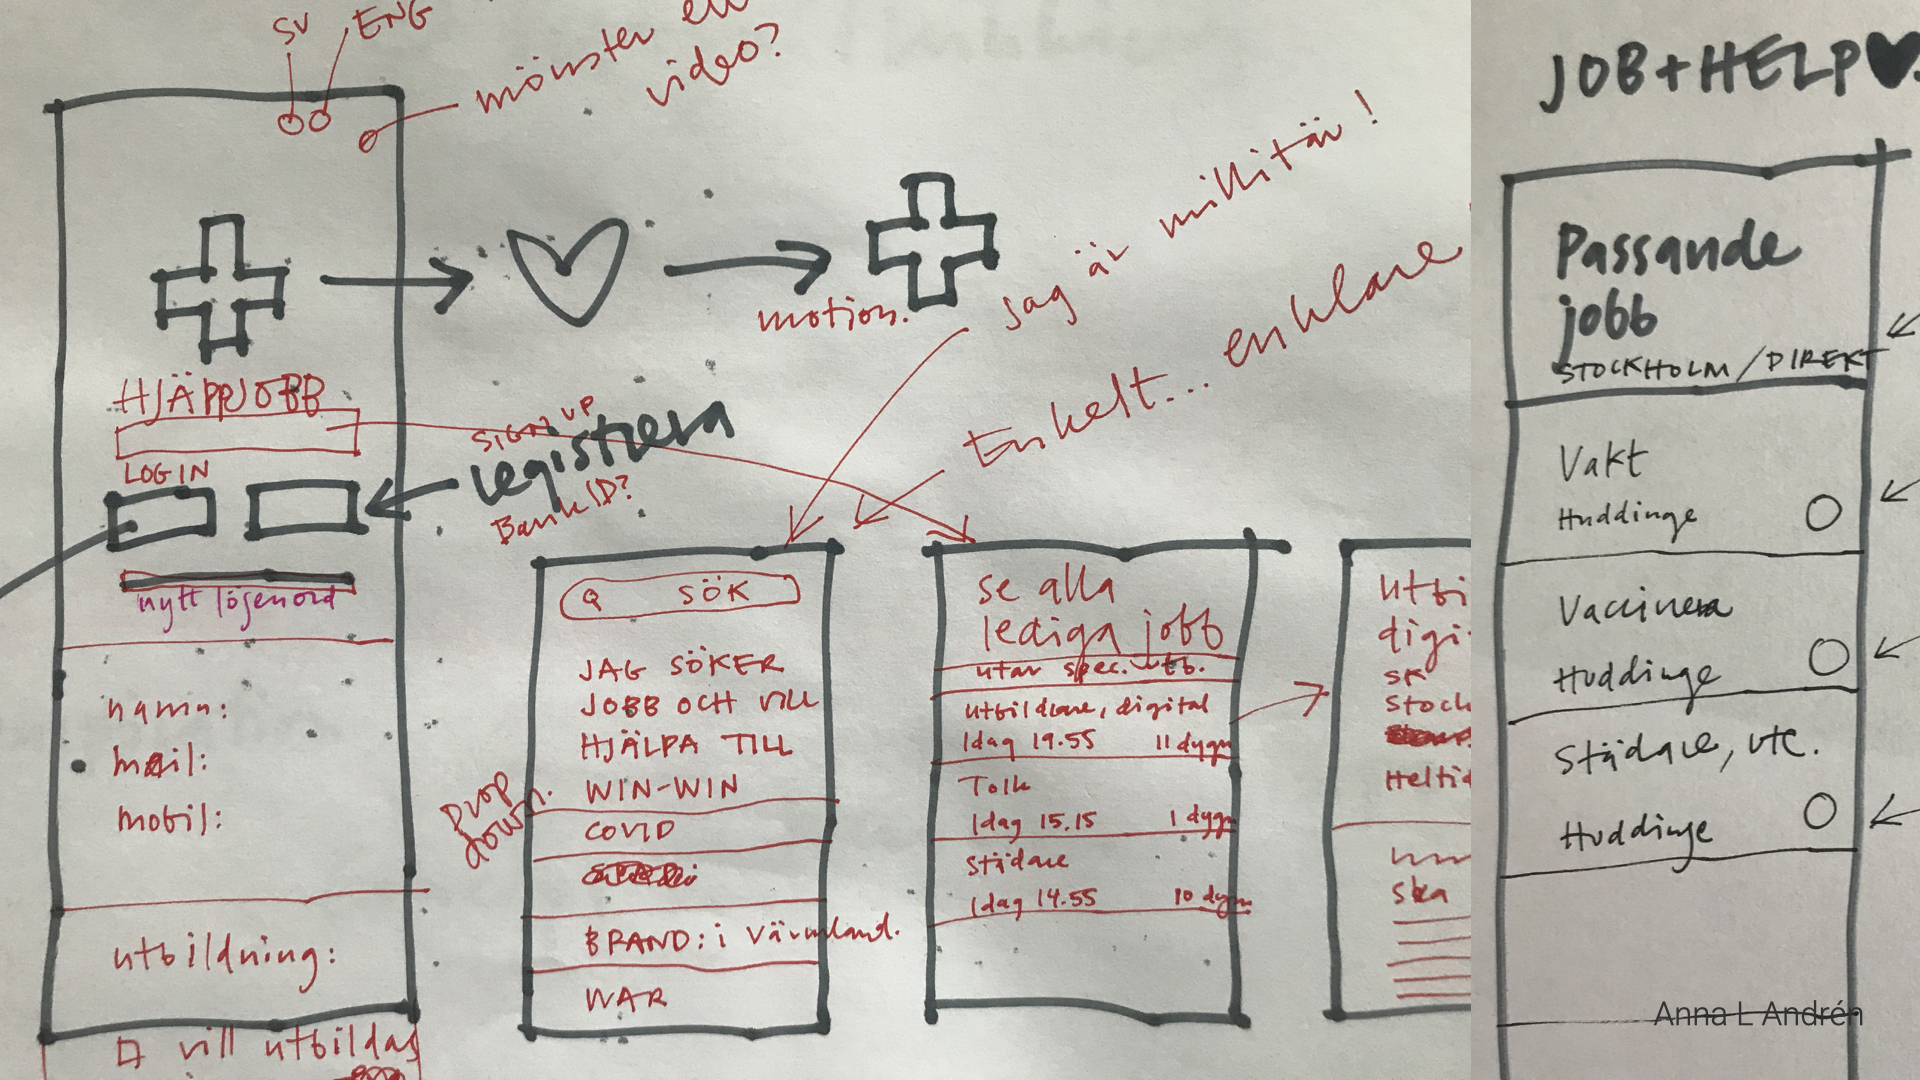 SV
ENG
mönster
video?
HJÄPPJOBB
LOG IN
SIGN UP
registrera
BankID?
nytt lösenord
namn:
mail:
mobil:
utbildning:
vill utbildas
motion.
Jag är millitär!
Enkelt... enklare
Drop
down.
SÖK
JAG SÖKER
JOBB OCH VILL
HJÄLPA TILL
WIN-WIN
COVID
BRAND: i Värmland.
WAR
se alla
lediga jobb
utan spec. utb.
utbildare, digital
Idag 19.55 11 dygn
Tolk
Idag 15.15 1 dygn
Städare
Idag 14.55 10 dygn
utbi
digi
SK
Stock
Heltid
Ska
JOB+HELP
Passande
jobb
STOCKHOLM/DIREKT
Vakt
Huddinge
Vaccinera
Huddinge
Städare, etc.
Huddinge
Anna L Andrén